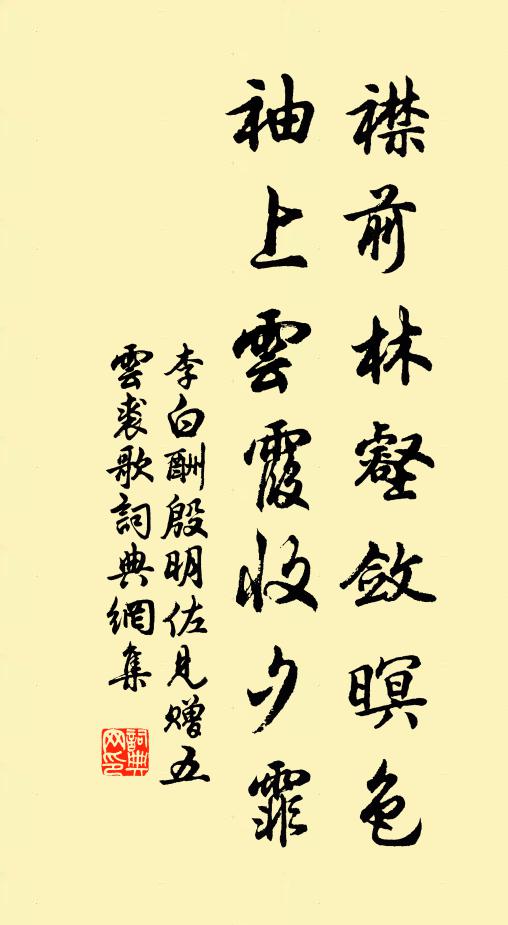 襟前林壑斂暝色
袖上雲霞收夕霏
李白酬殷明佐見贈五
雲裘歌詞典網集
詞典網印